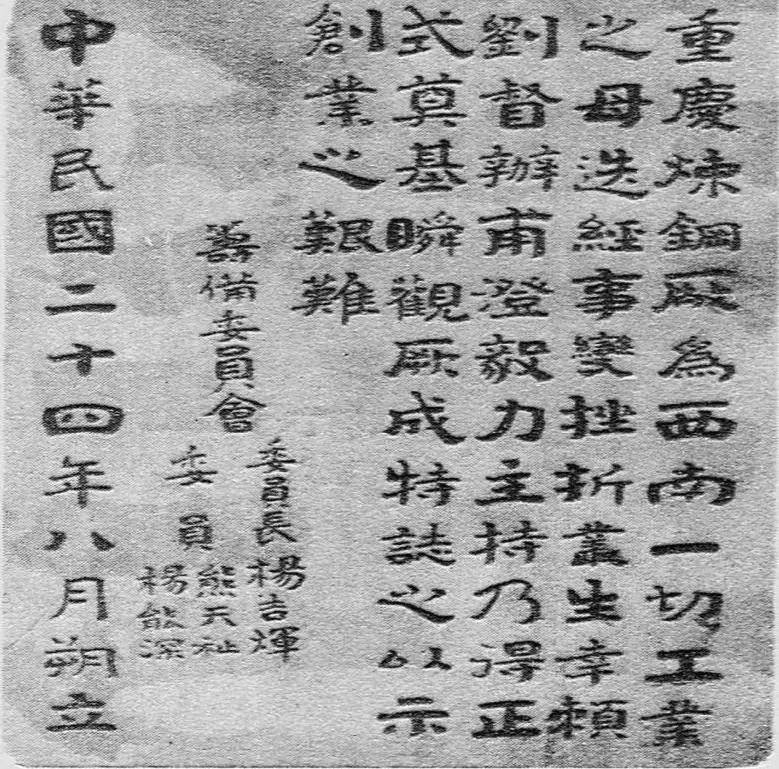 重慶煉鋼厰為西南一切工業
之母迭經事變挫折叢生幸賴
劉督辦甫澄毅力主持乃得正
式奠基瞬觀厥成特誌之以示
創業之艱難
籌備委員會
委員長楊吉煇
委員熊天祉
楊能深
中華民國二十四年八月朔立